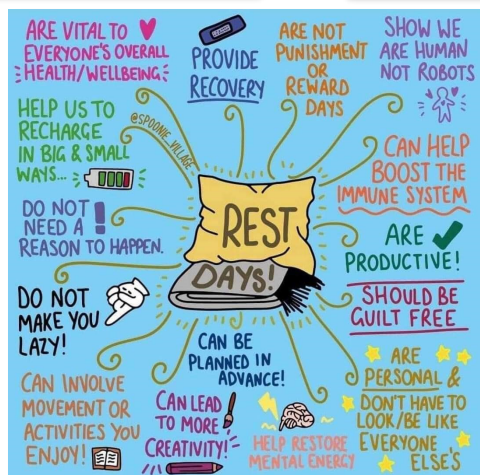 ARE VITAL TO
EVERYONE'S OVERALL
HEALTH/WELLBEING
PROVIDE
RECOVERY
ARE NOT
PUNISHMENT
OR
REWARD
DAYS
SHOW WE
ARE HUMAN
NOT ROBOTS
HELP US TO
RECHARGE
IN BIG & SMALL
WAYS...
@SPOONIE_VILLAGE
CAN HELP
BOOST THE
IMMUNE SYSTEM
DO NOT
NEED A !
REASON TO HAPPEN.
REST
DAYS!
ARE
PRODUCTIVE!
DO NOT
MAKE YOU
LAZY!
SHOULD BE
GUILT FREE
CAN BE
PLANNED IN
ADVANCE!
ARE
PERSONAL &
DON'T HAVE TO
LOOK/BE LIKE
EVERYONE
ELSE'S
CAN INVOLVE
MOVEMENT OR
ACTIVITIES YOU
ENJOY!
CAN LEAD
TO MORE
CREATIVITY!
HELP RESTORE
MENTAL ENERGY